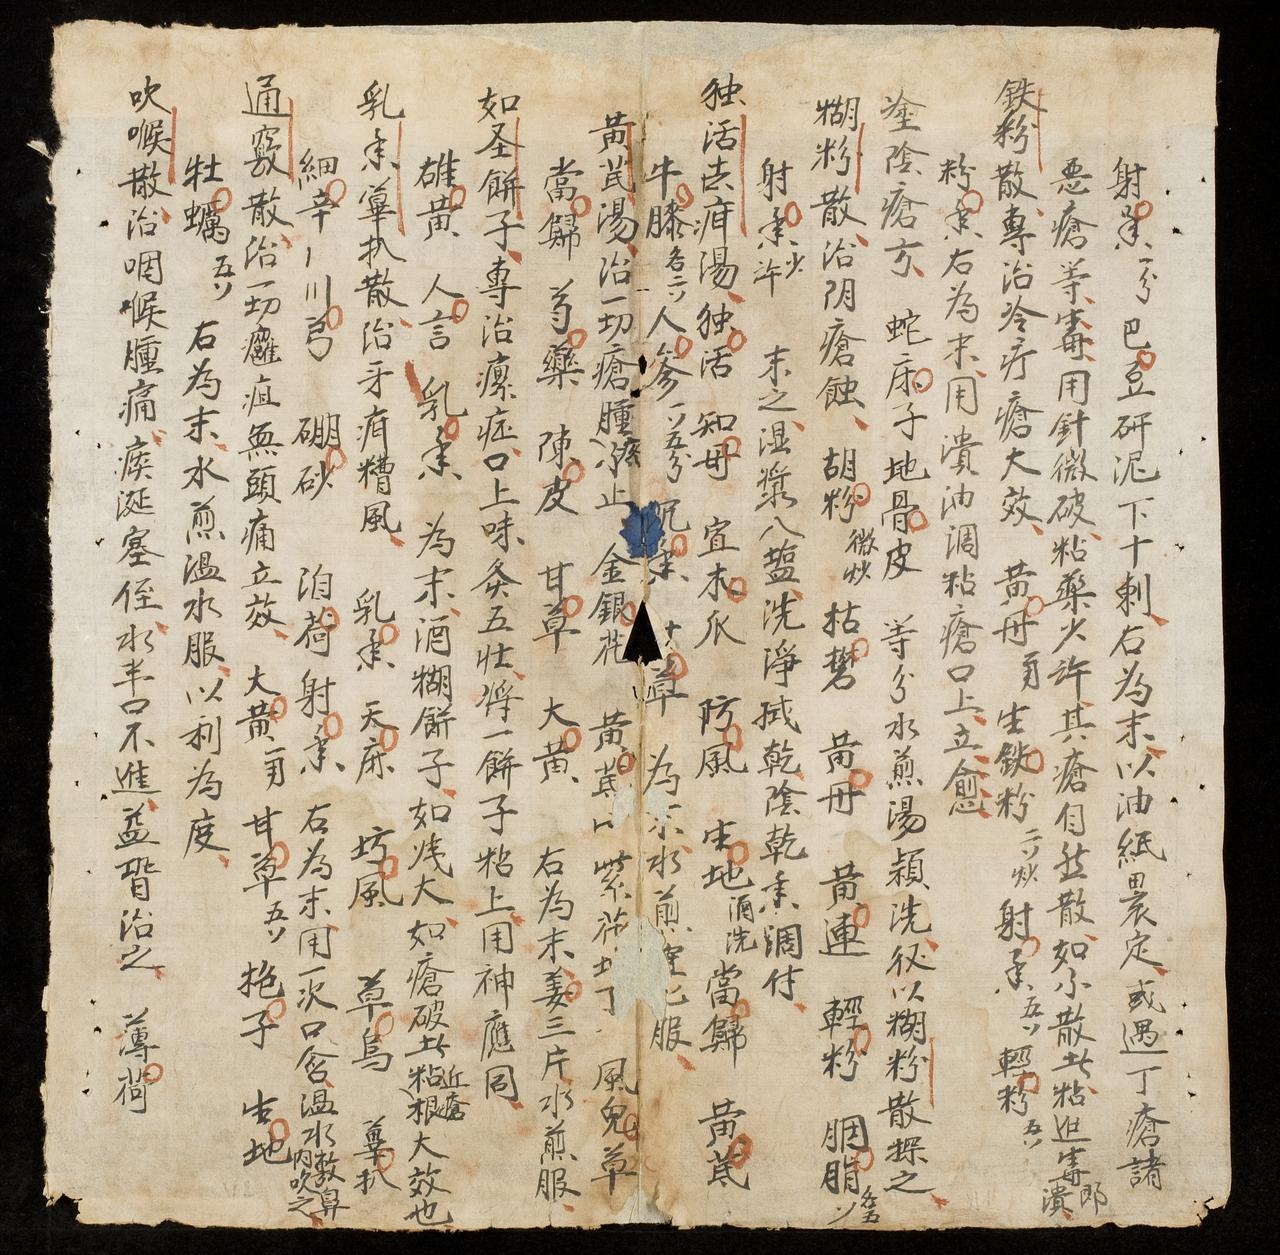 射香一分 巴豆研泥下十剌右為末以油紙裹定或遇丁瘡諸
惡瘡等毒用針微破粘藥少許其瘡自然散如不散此粘近毒即潰
鉄粉散專治冷疔瘡大效 黃丹 生鉄粉二炒 射香五 輕粉五
粉香右為末用潰油調粘瘡口上立愈
塗陰瘡方 蛇床子地骨皮 等分水煎湯頻洗後以糊粉散摻之
糊粉散治阴瘡蝕 胡粉微炒 枯礬 黃丹 黃連 輕粉 胭脂
射香少許 末之湿漿入盐洗淨拭乾陰乾香調付
独活去疳湯独活 知母 宣木瓜 防風 生地酒洗 當歸 黃芪
牛膝各二人參五分 沉香 草 為末水煎 服
黃芪湯治一切瘡腫疼不止 金銀花 黃 紫花地丁 風兒草
當歸 芍藥 陳皮 甘草 大黃 右為末姜三片水煎服
如圣餅子專治瘰症口上味灸五壮将一餅子粘上用神應同
雄黃 人言 乳香 為末酒糊餅子如 大如瘡破此粘近瘡根大效也
乳香蓽扒散治牙疳糟風 乳香 天麻 坊風 草烏 蓽扒
細辛 川芎 硼砂 泊荷 射香 右為末用一次口含温水数鼻内吹之
通竅散治一切癰疽無頭痛立效 大黃 甘草五 梔子 生地
牡蠣五 右為末水煎温水服以利為度
吹喉散治咽喉腫痛痰涎塞侄水半口不進並皆治之 薄荷